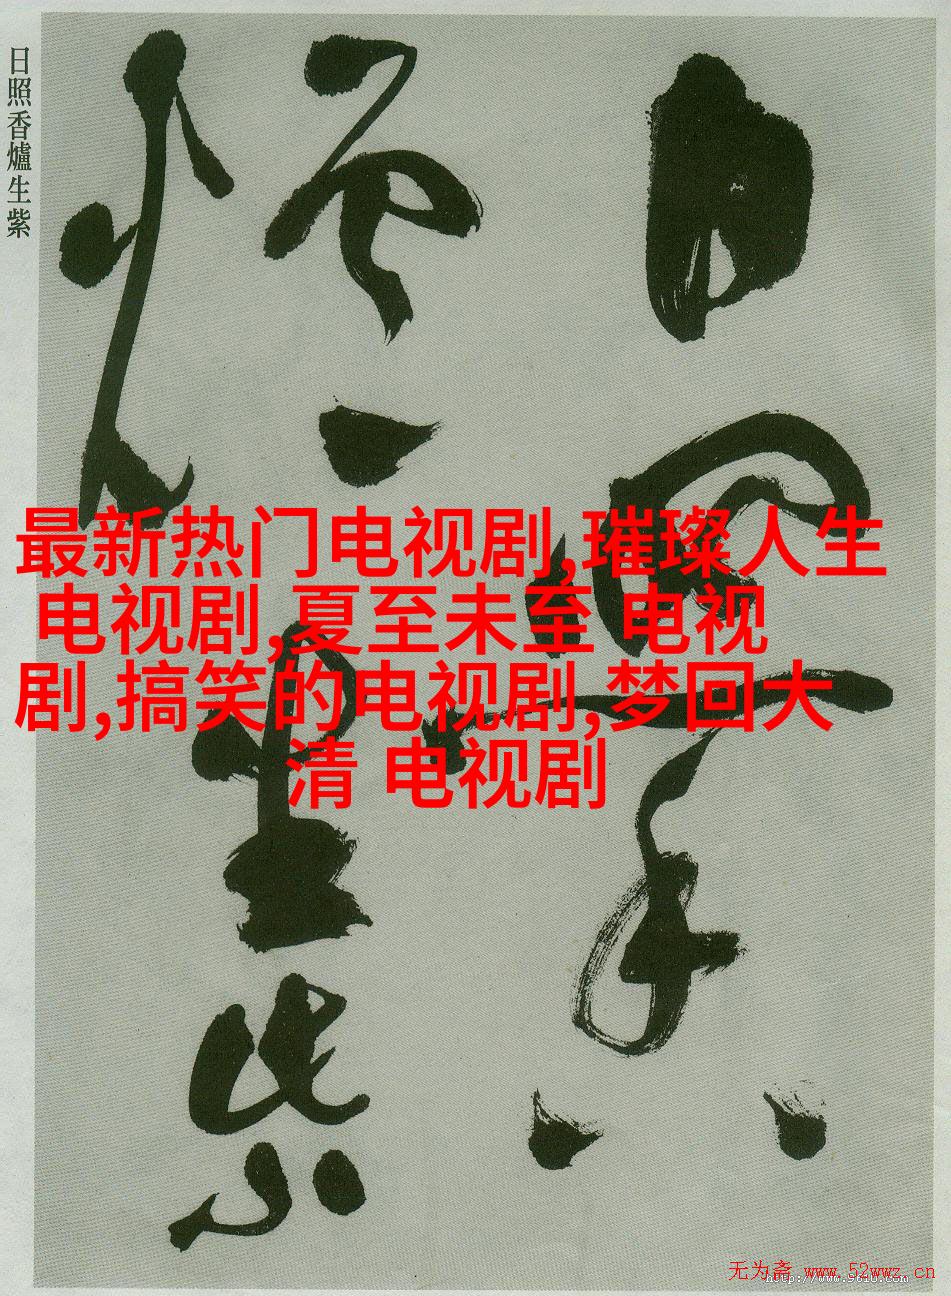 日照香爐生紫
日照香
爐生紫
最新热门电视剧,璀璨人生
电视剧,夏至未至 电视
剧,搞笑的电视剧,梦回大
清 电视剧
无为斋 www.52wwz.cn
http://www.9610.com